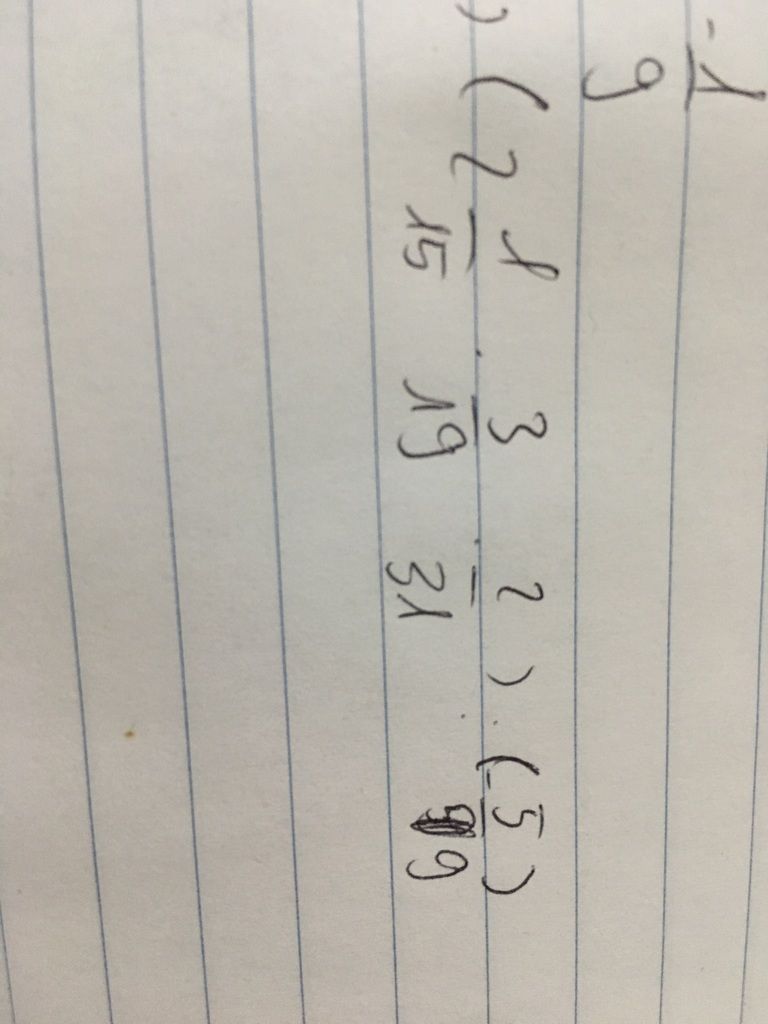 -1/9
) (2 1/15 · 3/19 · 2/31) : (-5/9)